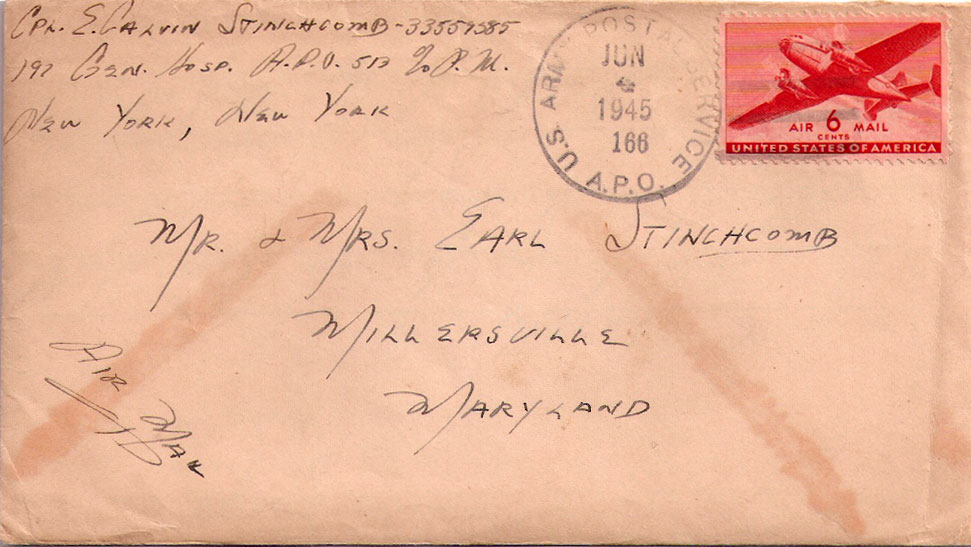 Cpl. E. Calvin Stinchcomb - 33559585
197 Gen. Hosp. A.P.O. 513 % P.M.
New York, New York
U.S. ARMY POSTAL SERVICE
JUN
4
1945
166
A.P.O.
AIR 6 MAIL
CENTS
UNITED STATES OF AMERICA
Mr. & Mrs. Earl Stinchcomb
Millersville
Maryland
Air Mail